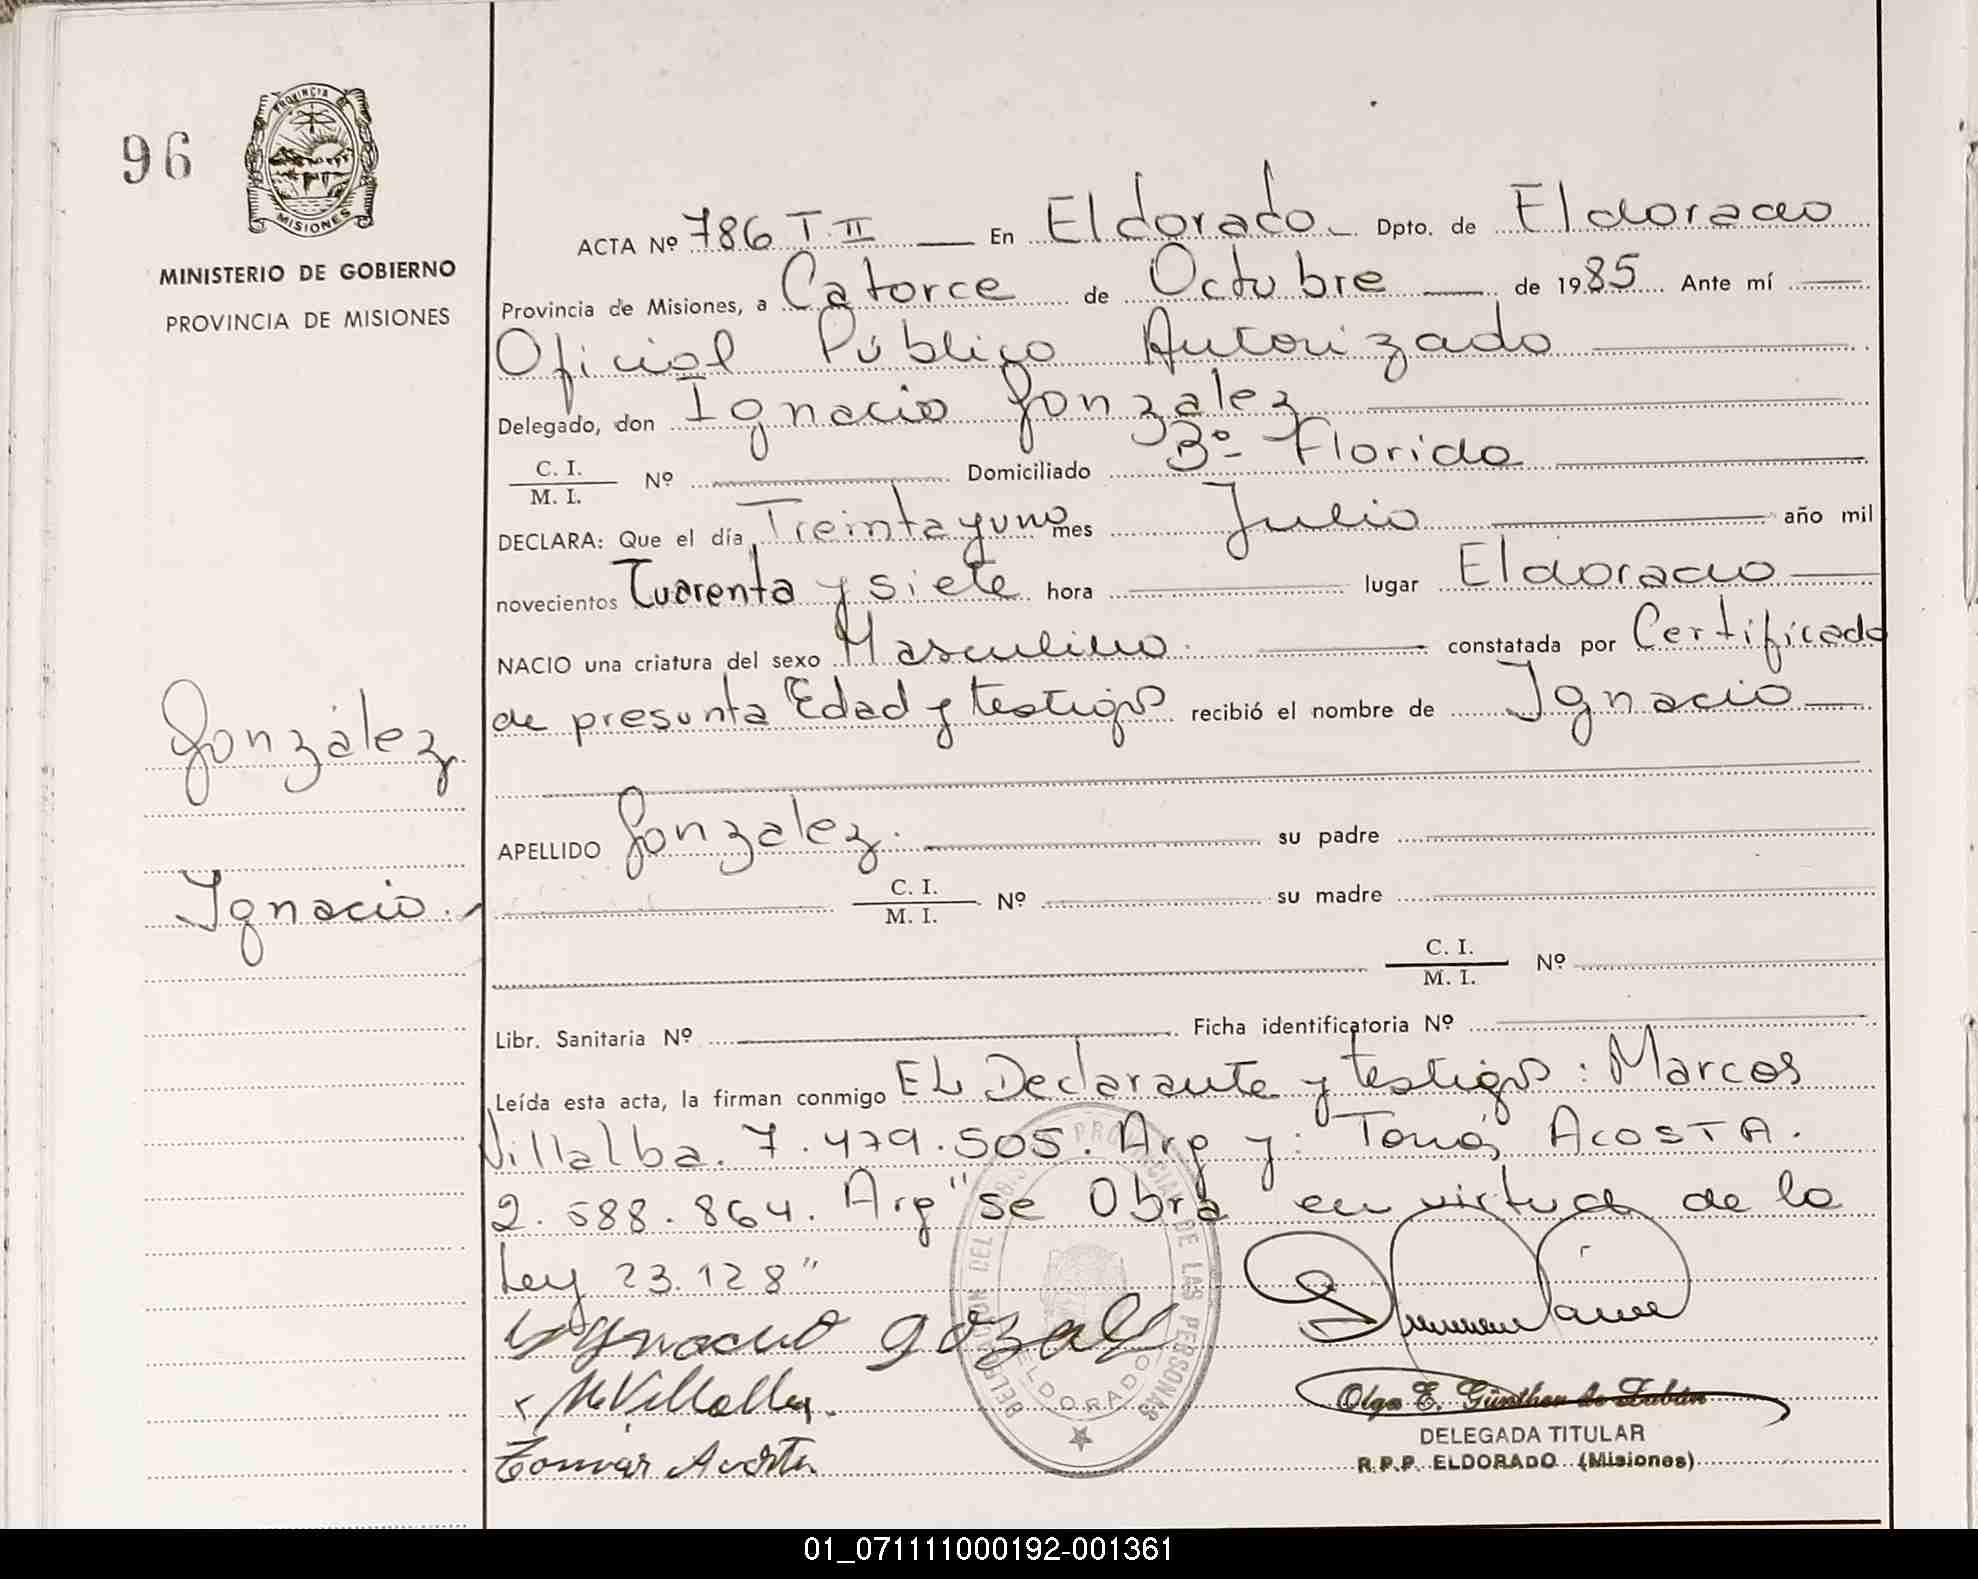 96
PROVINCIA DE
MISIONES
MINISTERIO DE GOBIERNO
PROVINCIA DE MISIONES
González
Ignacio.
ACTA Nº 786 T. II — En Eldorado Dpto. de Eldorado
Provincia de Misiones, a Catorce de Octubre de 1985 Ante mí
Oficial Público Autorizado
Delegado, don Ignacio González
C. I. / M. I. Nº Domiciliado Bº- Florida
DECLARA: Que el día Treinta y uno mes Julio año mil
novecientos Cuarenta y siete hora lugar Eldorado
NACIO una criatura del sexo Masculino constatada por Certificado
de presunta Edad y testigos recibió el nombre de Ignacio
APELLIDO González. su padre
C. I. / M. I. Nº su madre
C. I. / M. I. Nº
Libr. Sanitaria Nº Ficha identificatoria Nº
Leída esta acta, la firman conmigo EL Declarante y testigos: Marcos
Villalba. 7.479.505. Arg y: Tomás ACOSTA.
2.588.864. Arg "se Obra en virtud de la
Ley 23.128"
Ignacio gozalz
M Villalba.
Tomás Acosta
PROVINCIAL DE LAS PERSONAS
DELEGACION DEL
ELDORADO
Olga E. Günther de Zubán
DELEGADA TITULAR
R.P.P. ELDORADO (Misiones)
01_071111000192-001361